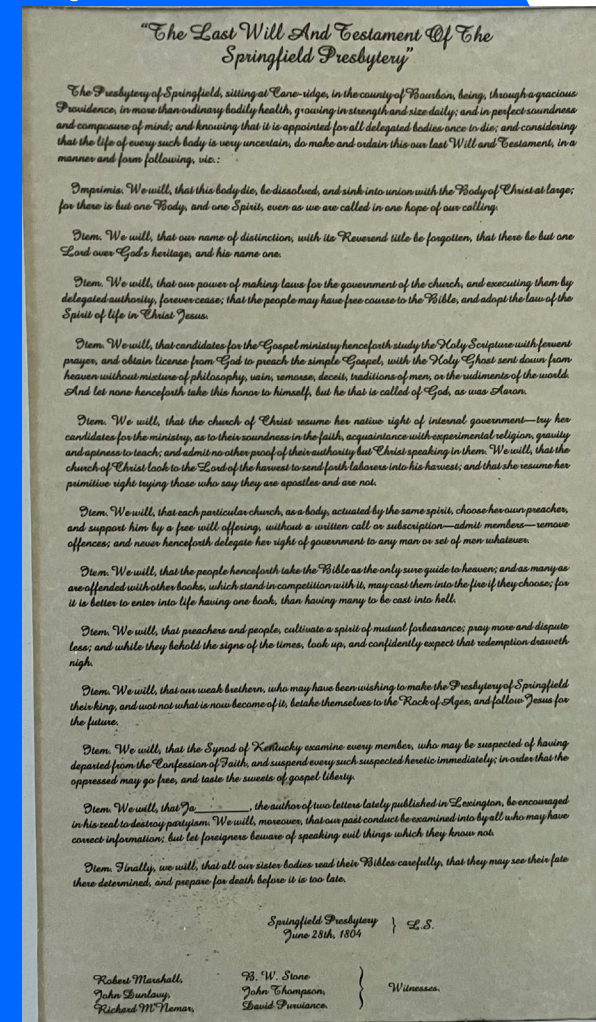 "The Last Will And Testament Of The
Springfield Presbytery"
The Presbytery of Springfield, sitting at Cane-ridge, in the county of Bourbon, being, through a gracious
Providence, in more than ordinary bodily health, growing in strength and size daily; and in perfect soundness
and composure of mind; and knowing that it is appointed for all delegated bodies once to die; and considering
that the life of every such body is very uncertain, do make and ordain this our last Will and Testament, in a
manner and form following, viz.:
Imprimis. We will, that this body die, be dissolved, and sink into union with the Body of Christ at large;
for there is but one Body, and one Spirit, even as we are called in one hope of our calling.
Item. We will, that our name of distinction, with its Reverend title be forgotten, that there be but one
Lord over God's heritage, and his name one.
Item. We will, that our power of making laws for the government of the church, and executing them by
delegated authority, forever cease; that the people may have free course to the Bible, and adopt the law of the
Spirit of life in Christ Jesus.
Item. We will, that candidates for the Gospel ministry henceforth study the Holy Scripture with fervent
prayer, and obtain license from God to preach the simple Gospel, with the Holy Ghost sent down from
heaven without mixture of philosophy, vain, remorse, deceit, traditions of men, or the rudiments of the world.
And let none henceforth take this honor to himself, but he that is called of God, as was Aaron.
Item. We will, that the church of Christ resume her native right of internal government—try her
candidates for the ministry, as to their soundness in the faith, acquaintance with experimental religion, gravity
and aptness to teach; and admit no other proof of their authority but Christ speaking in them. We will, that the
church of Christ look to the Lord of the harvest to send forth laborers into his harvest; and that she resume her
primitive right trying those who say they are apostles and are not.
Item. We will, that each particular church, as a body, actuated by the same spirit, choose her own preacher,
and support him by a free will offering, without a written call or subscription—admit members—remove
offences; and never henceforth delegate her right of government to any man or set of men whatever.
Item. We will, that the people henceforth take the Bible as the only sure guide to heaven; and as many as
are offended with other books, which stand in competition with it, may cast them into the fire if they choose; for
it is better to enter into life having one book, than having many to be cast into hell.
Item. We will, that preachers and people, cultivate a spirit of mutual forbearance; pray more and dispute
less; and while they behold the signs of the times, look up, and confidently expect that redemption draweth
nigh.
Item. We will, that our weak brethern, who may have been wishing to make the Presbytery of Springfield
their king, and wot not what is now become of it, betake themselves to the Rock of Ages, and follow Jesus for
the future.
Item. We will, that the Synod of Kentucky examine every member, who may be suspected of having
departed from the Confession of Faith, and suspend every such suspected heretic immediately; in order that the
oppressed may go free, and taste the sweets of gospel liberty.
Item. We will, that Ja________, the author of two letters lately published in Lexington, be encouraged
in his zeal to destroy partyism. We will, moreover, that our past conduct be examined into by all who may have
correct information; but let foreigners beware of speaking evil things which they know not.
Item. Finally, we will, that all our sister bodies read their Bibles carefully, that they may see their fate
there determined, and prepare for death before it is too late.
Springfield Presbytery } L.S.
June 28th, 1804
Robert Marshall, B. W. Stone
John Dunlavy, John Thompson, } Witnesses.
Richard M'Nemar, David Purviance.